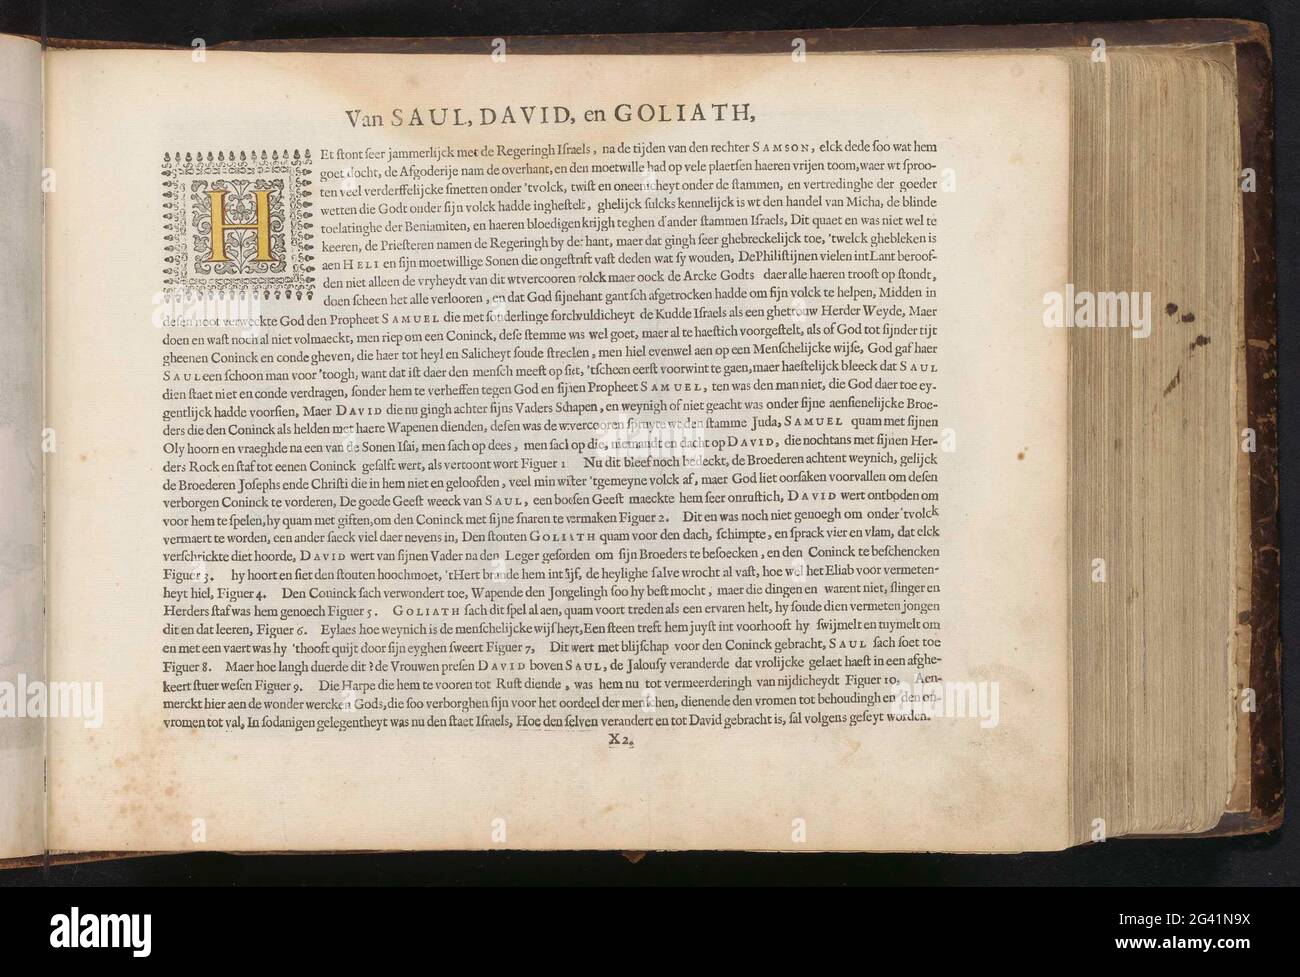 Van SAUL, DAVID, en GOLIATH,
HEt ſtont ſeer jammerlijck met de Regeringh Iſraels, na de tijden van den rechter SAMSON, elck dede ſoo wat hem
goet docht, de Afgoderije nam de overhant, en den moetwille had op vele plaetſen haeren vrijen toom, waer wt ſproo-
ten veel verderffelijcke ſmetten onder 'tvolck, twiſt en oneenicheyt onder de ſtammen, en vertredinghe der goeder
wetten die Godt onder ſijn volck hadde ingheſtelt, ghelijck ſulcks kennelijck is wt den handel van Micha, de blinde
toelatinghe der Beniamiten, en haeren bloedigen krijgh teghen d'ander ſtammen Iſraels, Dit quaet en was niet wel te
keeren, de Prieſteren namen de Regeringh by der hant, maer dat gingh ſeer ghebreckelijck toe, 'twelck ghebleken is
aen HELI en ſijn moetwillige Sonen die ongeſtraft vaſt deden wat ſy wouden, De Philiſtijnen vielen int Lant beroof-
den niet alleen de vryheydt van dit wtvercooren volck maer oock de Arcke Godts daer alle haeren trooſt op ſtondt,
doen ſcheen het alle verlooren, en dat God ſijne hant gantſch afgetrocken hadde om ſijn volck te helpen, Midden in
deſen noot verweckte God den Propheet SAMUEL die met ſonderlinge ſorchvuldicheyt de Kudde Iſraels als een ghetrouw Herder Weyde, Maer
doen en waſt noch al niet volmaeckt, men riep om een Coninck, deſe ſtemme was wel goet, maer al te haeſtich voorgeſtelt, als of God tot ſijnder tijt
gheenen Coninck en conde gheven, die haer tot heyl en Salicheyt ſoude ſtrecken, men hiel evenwel aen op een Menſchelijcke wijſe, God gaf haer
SAUL een ſchoon man voor 'toogh, want dat iſt daer den menſch meeſt op ſiet, 'tſcheen eerſt voorwint te gaen, maer haeſtelijck bleeck dat SAUL
dien ſtaet niet en conde verdragen, ſonder hem te verheffen tegen God en ſijnen Propheet SAMUEL, ten was den man niet, die God daer toe ey-
gentlijck hadde voorſien, Maer DAVID die nu gingh achter ſijns Vaders Schapen, en weynigh of niet geacht was onder ſijne aenſienelijcke Broe-
ders die den Coninck als helden met haere Wapenen dienden, deſen was de wvercooren ſpruyte wt den ſtamme Juda, SAMUEL quam met ſijnen
Oly hoorn en vraeghde na een van de Sonen Iſai, men ſach op dees, men ſach op die, niemandt en dacht op DAVID, die nochtans met ſijnen Her-
ders Rock en ſtaf tot eenen Coninck geſalft wert, als vertoont wort Figuer 1 Nu dit bleef noch bedeckt, de Broederen achtent weynich, gelijck
de Broederen Joſephs ende Chriſti die in hem niet en geloofden, veel min wiſter 'tgemeyne volck af, maer God liet oorſaken voorvallen om deſen
verborgen Coninck te vorderen, De goede Geeſt weeck van SAUL, een booſen Geeſt maeckte hem ſeer onruſtich, DAVID wert ontboden om
voor hem te ſpelen, hy quam met giften, om den Coninck met ſijne ſnaren te vermaken Figuer 2. Dit en was noch niet genoegh om onder 'tvolck
vermaert te worden, een ander ſaeck viel daer nevens in, Den ſtouten GOLIATH quam voor den dach, ſchimpte, en ſprack vier en vlam, dat elck
verſchrickte diet hoorde, DAVID wert van ſijnen Vader na den Leger geſonden om ſijn Broeders te beſoecken, en den Coninck te beſchencken
Figuer 3. hy hoort en ſiet den ſtouten hoochmoet, 'tHert brande hem int lijf, de heylighe ſalve wrocht al vaſt, hoe wel het Eliab voor vermeten-
heyt hiel, Figuer 4. Den Coninck ſach verwondert toe, Wapende den Jongelingh ſoo hy beſt mocht, maer die dingen en warent niet, ſlinger en
Herders ſtaf was hem genoech Figuer 5. GOLIATH ſach dit ſpel al aen, quam voort treden als een ervaren helt, hy ſoude dien vermeten jongen
dit en dat leeren, Figuer 6. Eylaes hoe weynich is de menſchelijcke wijſheyt, Een ſteen treft hem juyſt int voorhooft hy ſwijmelt en tuymelt om
en met een vaert was hy 'thooft quijt door ſijn eyghen ſweert Figuer 7, Dit wert met blijſchap voor den Coninck gebracht, SAUL ſach ſoet toe
Figuer 8. Maer hoe langh duerde dit? de Vrouwen preſen DAVID boven SAUL, de Jalouſy veranderde dat vrolijcke gelaet haeſt in een afghe-
keert ſtuer weſen Figuer 9. Die Harpe die hem te vooren tot Ruſt diende, was hem nu tot vermeerderingh van nijdicheydt Figuer 10, Aen-
merckt hier aen de wonder wercken Gods, die ſoo verborghen ſijn voor het oordeel der menſchen, dienende den vromen tot behoudingh en den on-
vromen tot val, In ſodanigen gelegentheyt was nu den ſtaet Iſraels, Hoe den ſelven verandert en tot David gebracht is, ſal volgens geſeyt worden.
X2.
alamy
alamy
Image ID: 2G41N9X
www.alamy.com